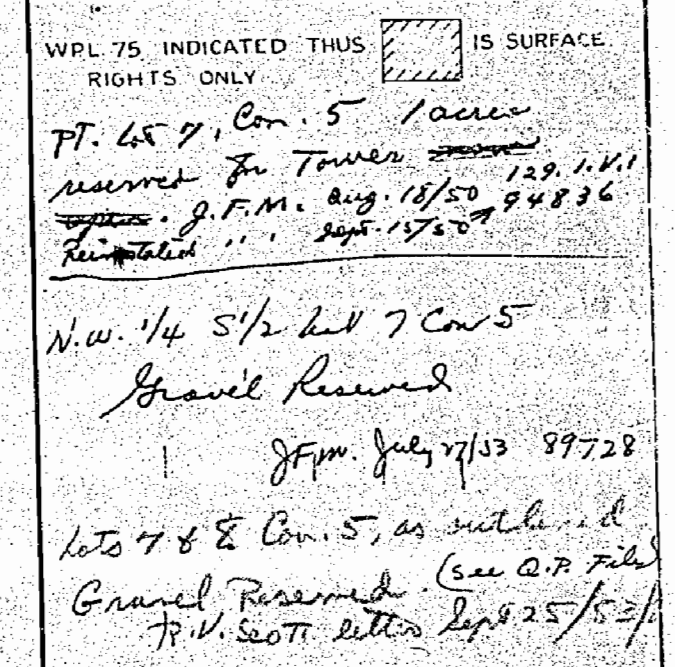 W.P.L. 75 INDICATED THUS IS SURFACE
RIGHTS ONLY
PT. Lot 7, Con. 5 1 acre
reserved for Tower
J.F.M. Aug. 18/50 129.1.V.1
Reinstated " " Sept. 15/50 → 94836
N.W. 1/4 S 1/2 Lot 7 Con 5
Gravel Reserved
JFM. July 27/53 89728
Lots 7 & 8 Con. 5, as outlined
Gravel Reserved. (see Q.P. File)
R.V. Scott letter Sept 25/53